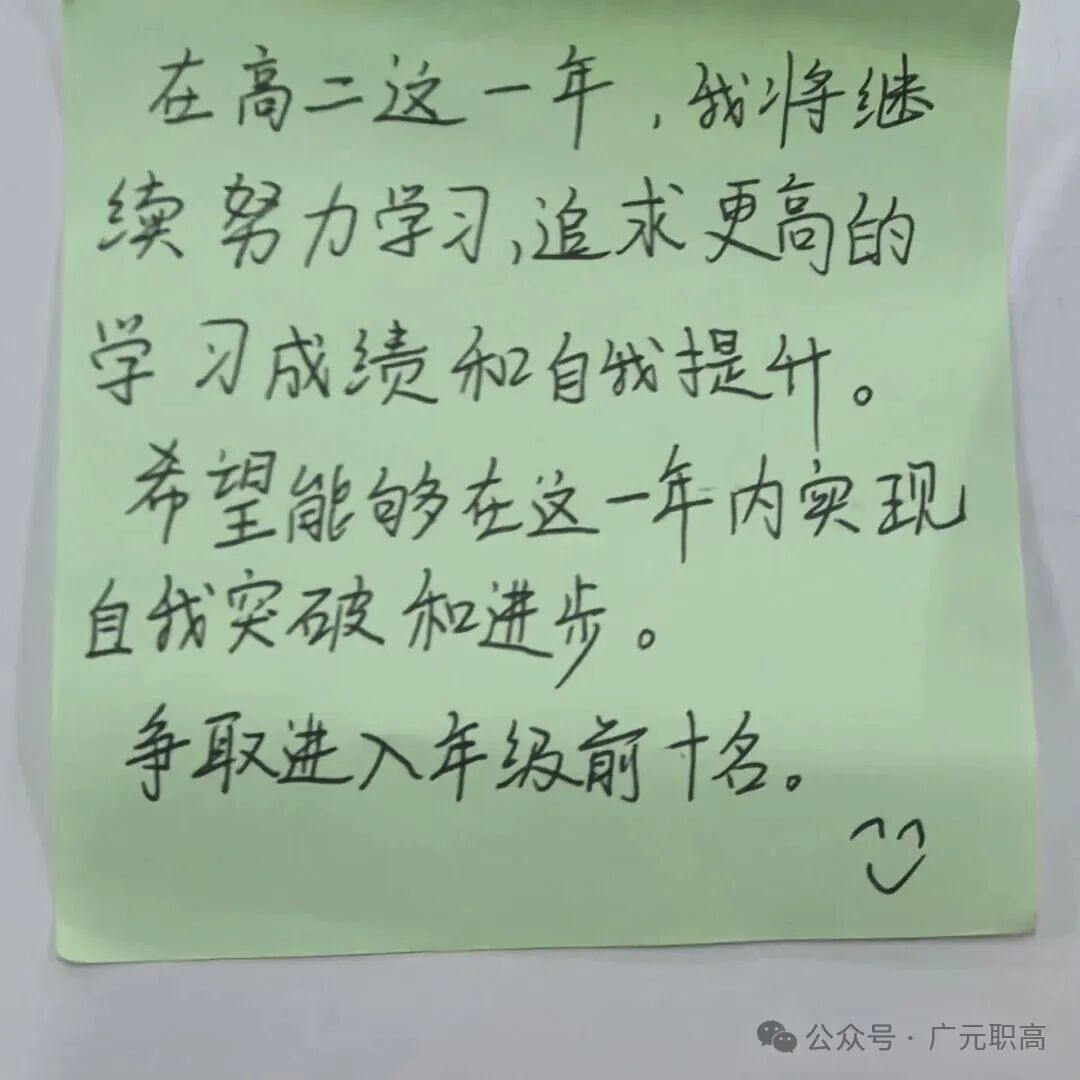 在高二这一年，我将继
续努力学习，追求更高的
学习成绩和自我提升。
希望能够在这一年内实现
自我突破和进步。
争取进入年级前十名。
公众号·广元职高